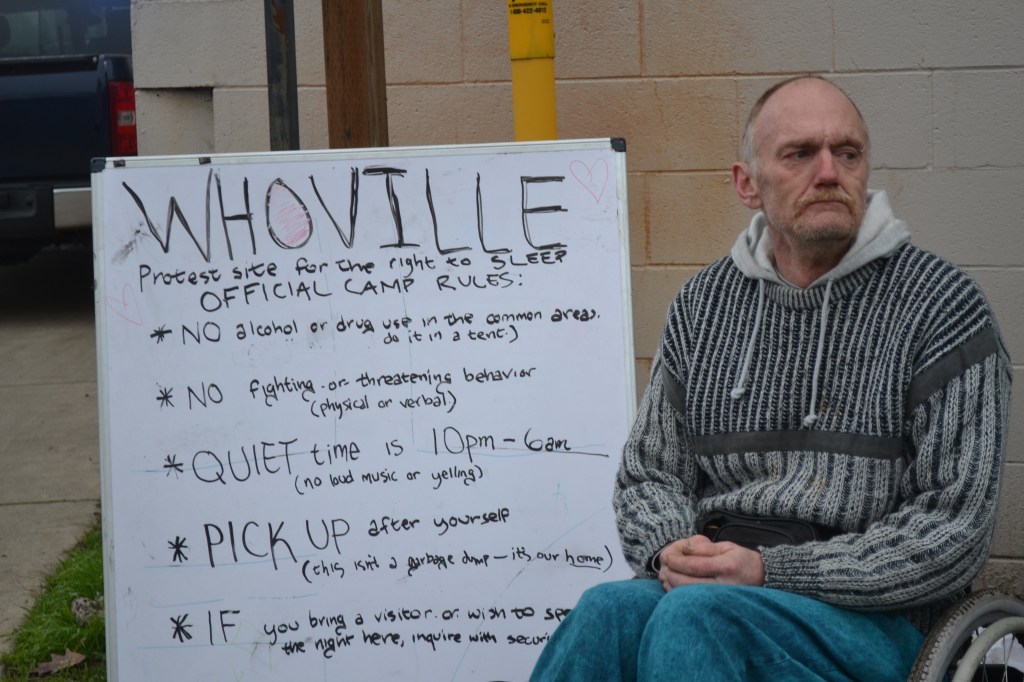 WHOVILLE
Protest site for the right to SLEEP
OFFICIAL CAMP RULES:
* NO alcohol or drug use in the common areas.
do it in a tent)
* NO fighting or threatening behavior
(physical or verbal)
* QUIET time is 10pm - 6am
(no loud music or yelling)
* PICK UP after yourself
(this isn't a garbage dump - it's our home)
* IF you bring a visitor or wish to
the night here, inquire with